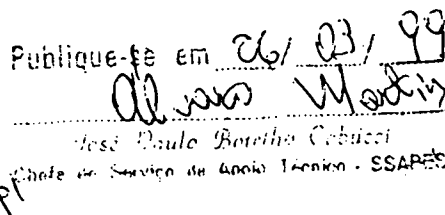 Publique-se em 26/ 03/ 99
Alvaro Martin
José Paulo Botelho Cobucci
Chefe do Serviço de Apoio Técnico - SSAPES
p/